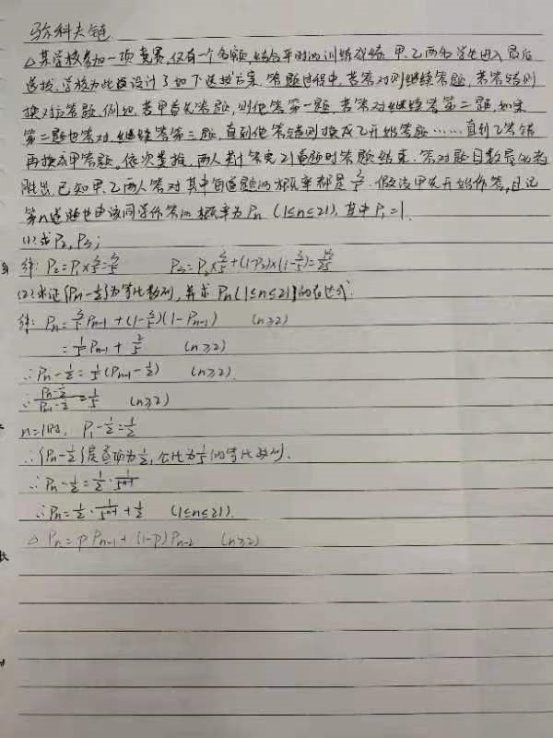 马尔科夫链
△某学校参加一项竞赛,仅有一个名额,结合平时的训练成绩,甲、乙两名学生进入最后
选拔,学校为此设计了如下选拔方案:答题过程中,若答对则继续答题,若答错则
换对方答题,例如,若甲首先答题,则他答第一题,若答对继续答第二题,如果
第二题也答对,继续答第三题,直到他答错则换成乙开始答题……直到乙答错
再换成甲答题,依次类推,两人共计答完21道题时答题结束,答对题目数量多者
胜出,已知甲、乙两人答对其中每道题的概率都是3/5,假设甲先开始作答,且记
第n道题也由该同学作答的概率为Pn (1≤n≤21),其中P₁=1.
(1)求P₂,P₃;
解: P₂=P₁×3/5=3/5 P₃=P₂×3/5+(1-P₂)×(1-3/5)=13/25
(2)求证{Pn-1/2}为等比数列,并求Pn(1≤n≤21)的表达式.
解: Pn=3/5Pn-1+(1-3/5)(1-Pn-1) (n≥2)
=1/5Pn-1+2/5 (n≥2)
∴Pn-1/2=1/5(Pn-1-1/2) (n≥2)
∴(Pn-1/2)/(Pn-1-1/2)=1/5 (n≥2)
n=1时, P₁-1/2=1/2
∴{Pn-1/2}是首项为1/2,公比为1/5的等比数列.
∴Pn-1/2=1/2·1/5ⁿ⁻¹
∴Pn=1/2·1/5ⁿ⁻¹+1/2 (1≤n≤21).
△ Pn=pPn-1+(1-p)Pn-2 (n≥2)